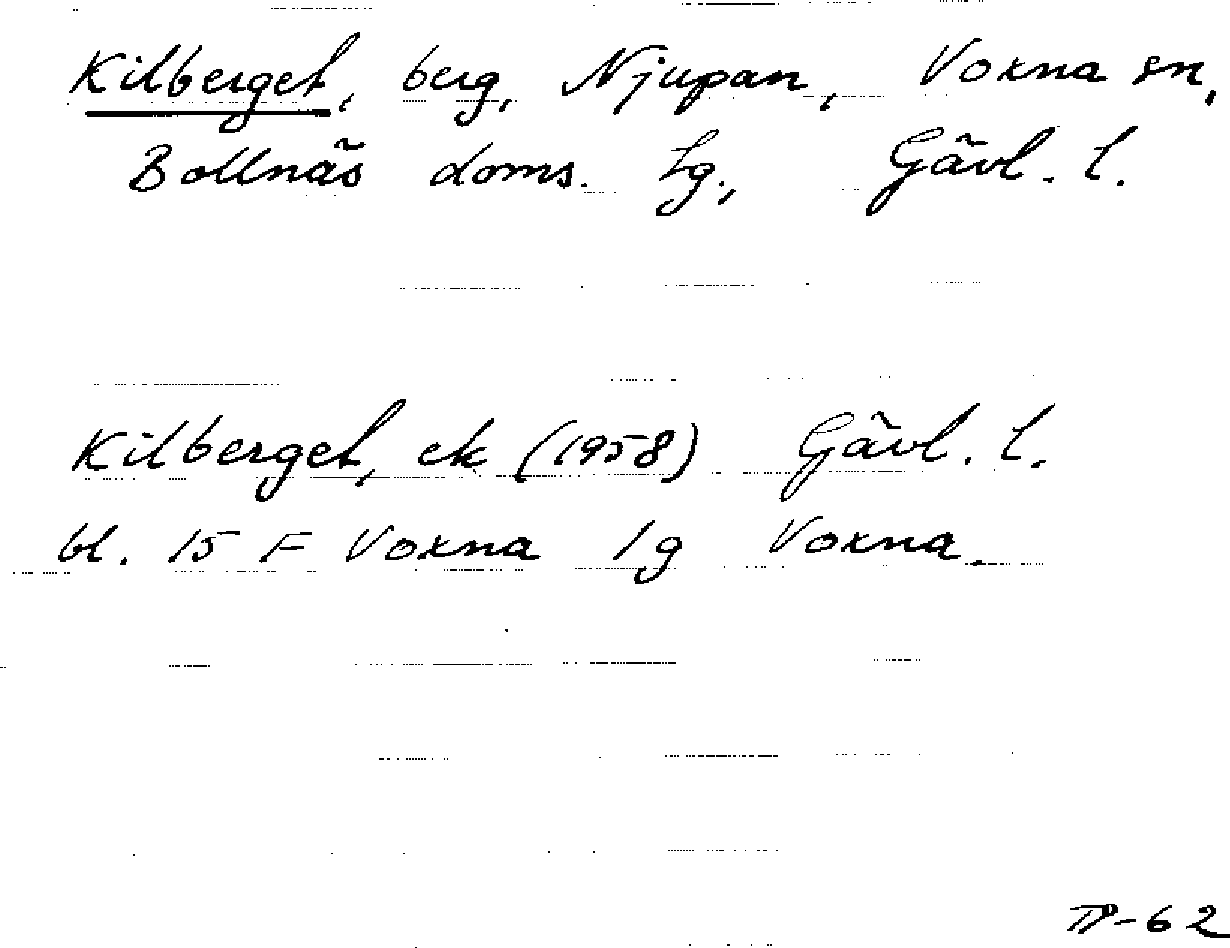 Kilberget, berg, Njupan, Voxna sn,
Bollnäs doms. lg., Gävl. l.
Kilberget, ek (1958) Gävl. l.
bl. 15 F Voxna 1g Voxna.
TP-62